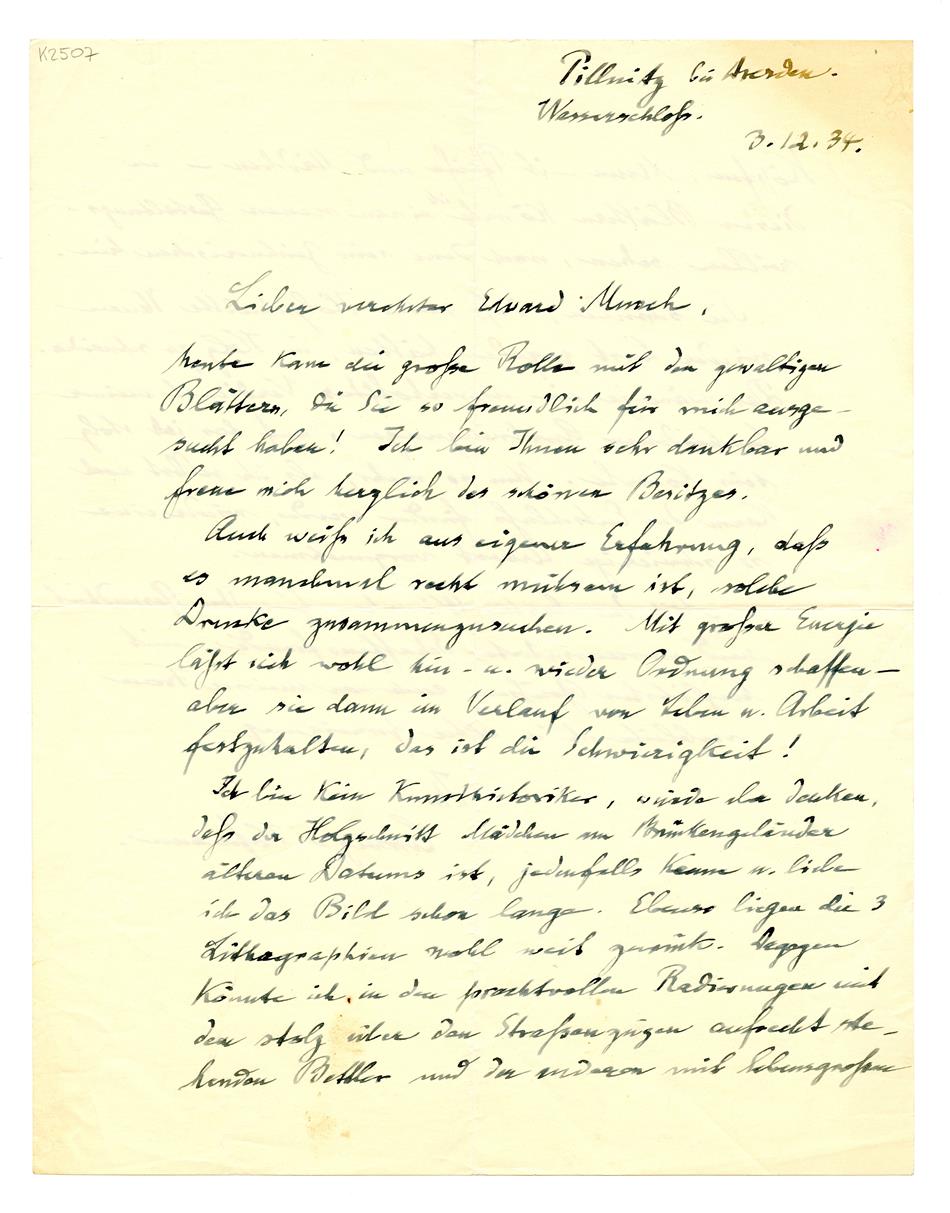 K2507
Pillnitz bei Dresden.
Wasserschloß.
3.12.34.
Lieber verehrter Edvard Munch,
heute kam die große Rolle mit den gewaltigen
Blättern, die Sie so freundlich für mich ausge-
sucht haben! Ich bin Ihnen sehr dankbar und
freue mich herzlich des schönen Besitzes.
Auch weiß ich aus eigener Erfahrung, daß
es manchmal recht mühsam ist, solche
Drucke zusammenzusuchen. Mit großer Energie
läßt sich wohl hin- u. wieder Ordnung schaffen –
aber sie dann im Verlauf von Leben u. Arbeit
festzuhalten, das ist die Schwierigkeit!
Ich bin kein Kunsthistoriker, würde da denken,
daß der Holzschnitt Mädchen am Brückengeländer
älteren Datums ist, jedenfalls kenne u. liebe
ich das Bild schon lange. Ebenso liegen die 3
Lithographien wohl weit zurück. Dagegen
könnte ich in den prachtvollen Radierungen mit
dem stolz über den Straßenzügen aufrecht ste-
henden Bettler und der anderen mit lebensgroßen